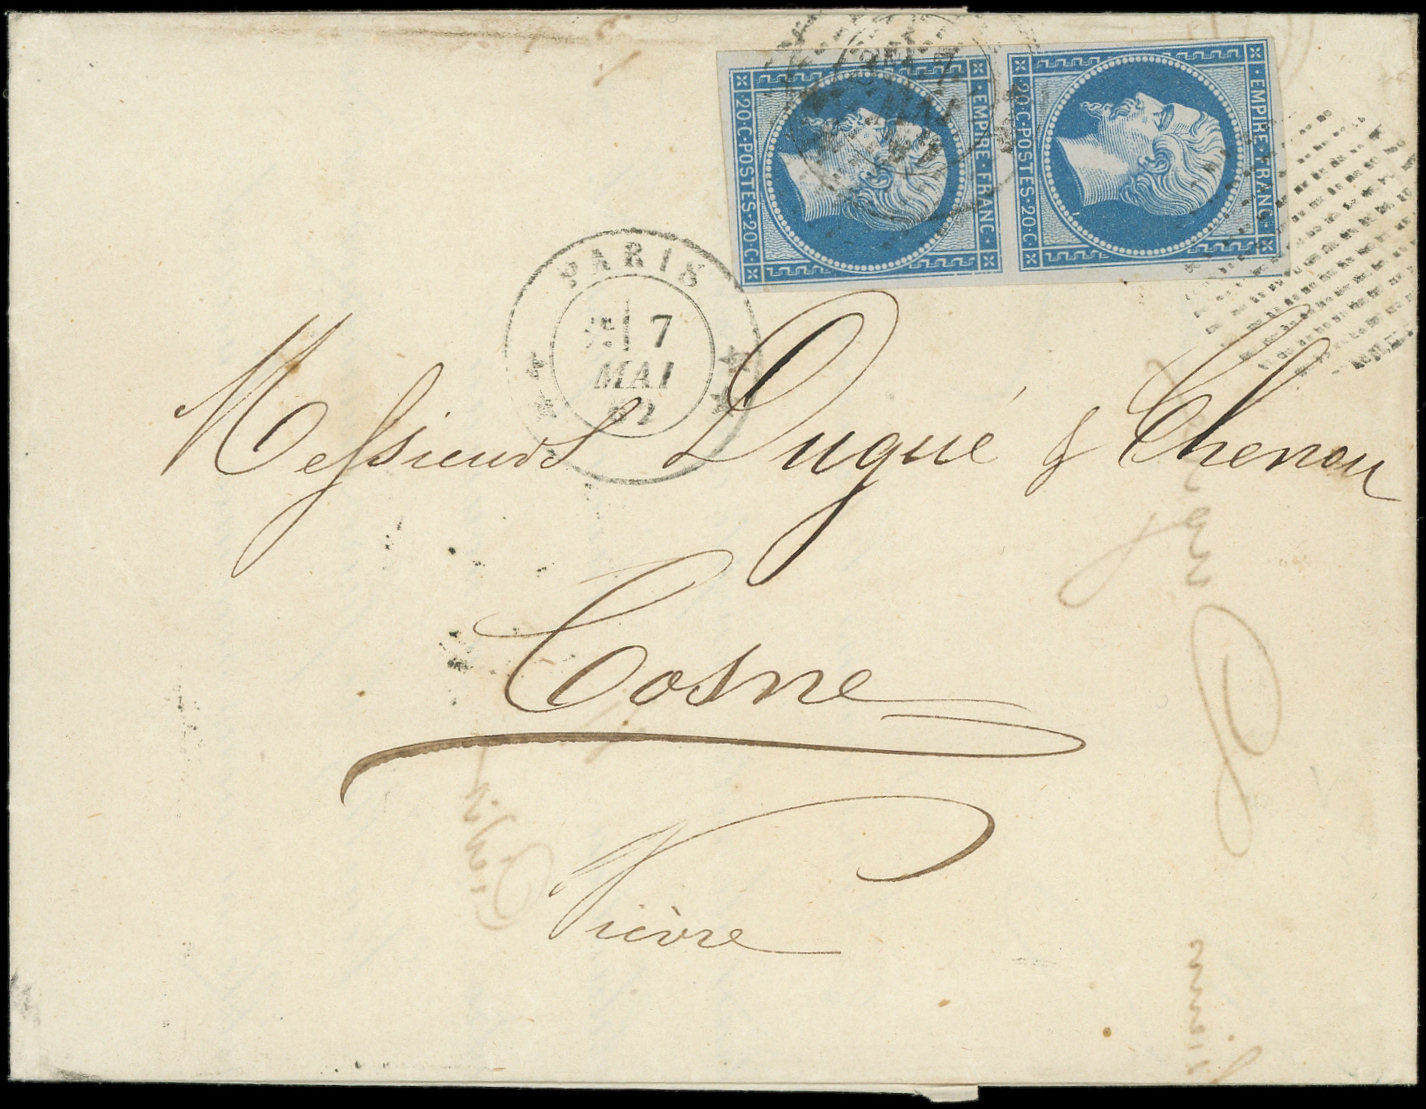 EMPIRE · FRANC ·
20 · C · POSTES · 20 · C
EMPIRE · FRANC ·
20 · C · POSTES · 20 · C
MAI
PARIS
7
MAI
62
Messieurs Dugué & Chenou
Cosne
Nièvre